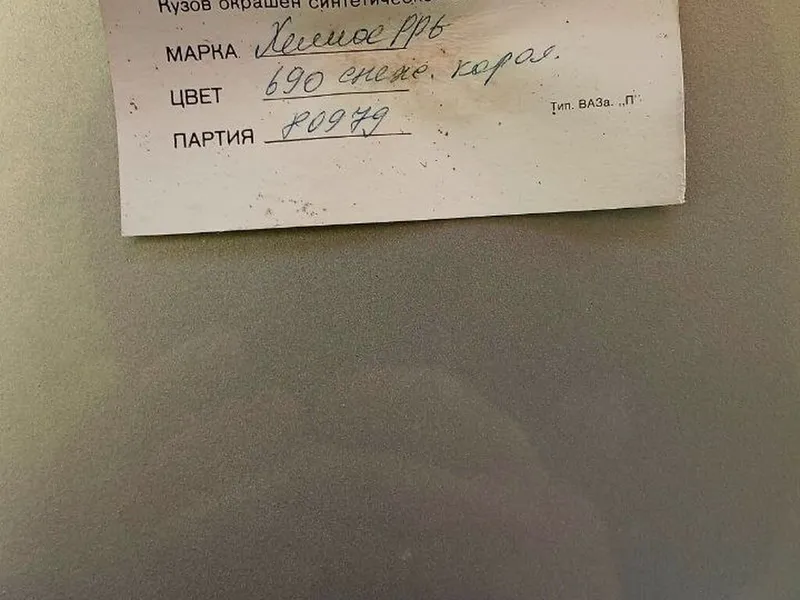 Кузов окрашен синтетическо
МАРКА Хелиос РРЬ
ЦВЕТ 690 снежн. корол.
ПАРТИЯ 80979
Тип. ВАЗа. „П"